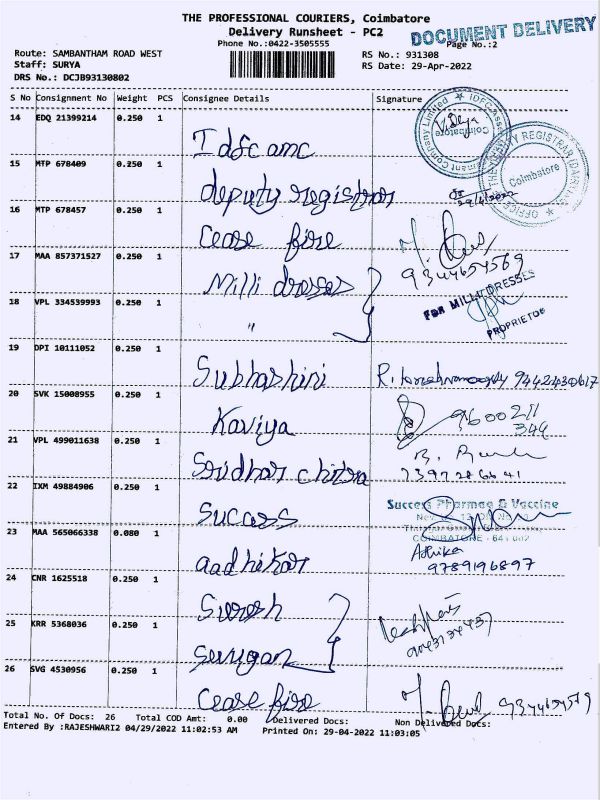 THE PROFESSIONAL COURIERS, Coimbatore
Delivery Runsheet - PC2
DOCUMENT DELIVERY
Phone No.:0422-3505555
Page No.:2
Route: SAMBANTHAM ROAD WEST
RS No.: 931308
Staff: SURYA
RS Date: 29-Apr-2022
DRS No.: DCJB93130802
S No Consignment No Weight PCS Consignee Details Signature
14 EDQ 21399214 0.250 1 Idfc amc
15 MTP 678409 0.250 1 deputy registrar
OFFICE OF THE DEPUTY REGISTRAR
Coimbatore
29/4/2022
16 MTP 678457 0.250 1 Cease fire
17 MAA 857371527 0.250 1 Milli dresses
9344654569
18 VPL 334539993 0.250 1 "
FOR MILLI DRESSES
PROPRIETOR
19 DPI 10111052 0.250 1 Subhashini
20 SVK 15008955 0.250 1 Kaviya
9600211
344
21 VPL 499011638 0.250 1 Sridhar chitra
22 IXM 49884906 0.250 1 Success
Success Pharmae & Vaccine
COIMBATORE - 641 002
23 MAA 565066338 0.080 1 aadhikar
Adhika
9789196897
24 CNR 1625518 0.250 1 Suresh
25 KRR 5368036 0.250 1 Serugan
26 SVG 4530956 0.250 1 Cease fire
Total No. Of Docs: 26 Total COD Amt: 0.00 Delivered Docs: Non Delivered Docs:
Entered By :RAJESHWARI2 04/29/2022 11:02:53 AM Printed On: 29-04-2022 11:03:05